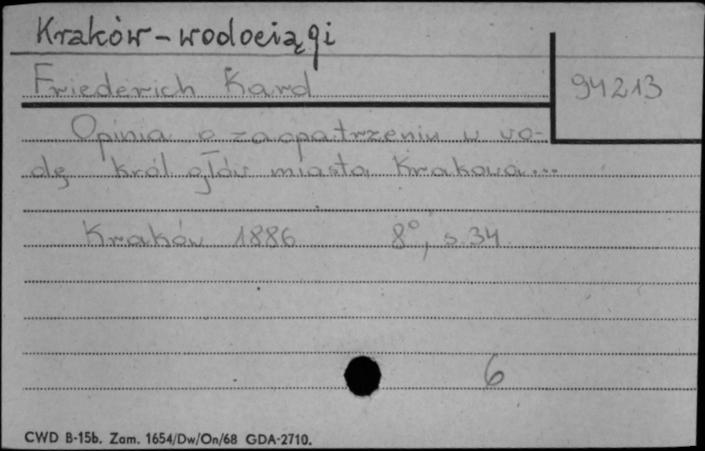 Kraków - wodociągi
Friederich Karol
94213
Opinia o zaopatrzeniu w wo-
dę król. głów. miasta Krakowa...
Kraków 1886 8°, s. 34.
6
CWD B-15b. Zam. 1654/Dw/On/68 GDA-2710.